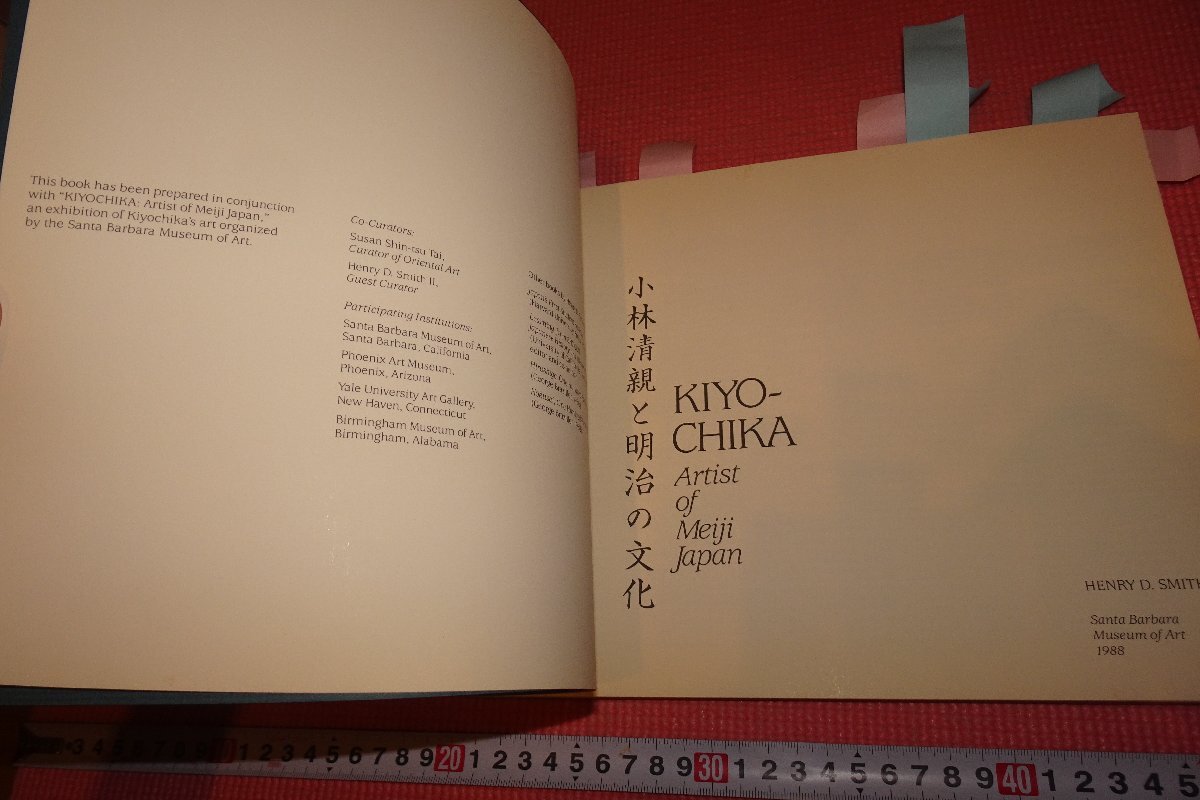 This book has been prepared in conjunction
with "KIYOCHIKA: Artist of Meiji Japan,"
an exhibition of Kiyochika's art organized
by the Santa Barbara Museum of Art.
Co-Curators:
Susan Shin-tsu Tai,
Curator of Oriental Art
Henry D. Smith II,
Guest Curator
Participating Institutions:
Santa Barbara Museum of Art,
Santa Barbara, California
Phoenix Art Museum,
Phoenix, Arizona
Yale University Art Gallery,
New Haven, Connecticut
Birmingham Museum of Art,
Birmingham, Alabama
Other books by
小林清親と明治の文化
KIYO-
CHIKA
Artist
of
Meiji
Japan
HENRY D. SMITH
Santa Barbara
Museum of Art
1988
3 4 5 6 7 8 9 10 1 2 3 4 5 6 7 8 9 20 1 2 3 4 5 6 7 8 9 30 1 2 3 4 5 6 7 8 9 40 1 2 3 4 5